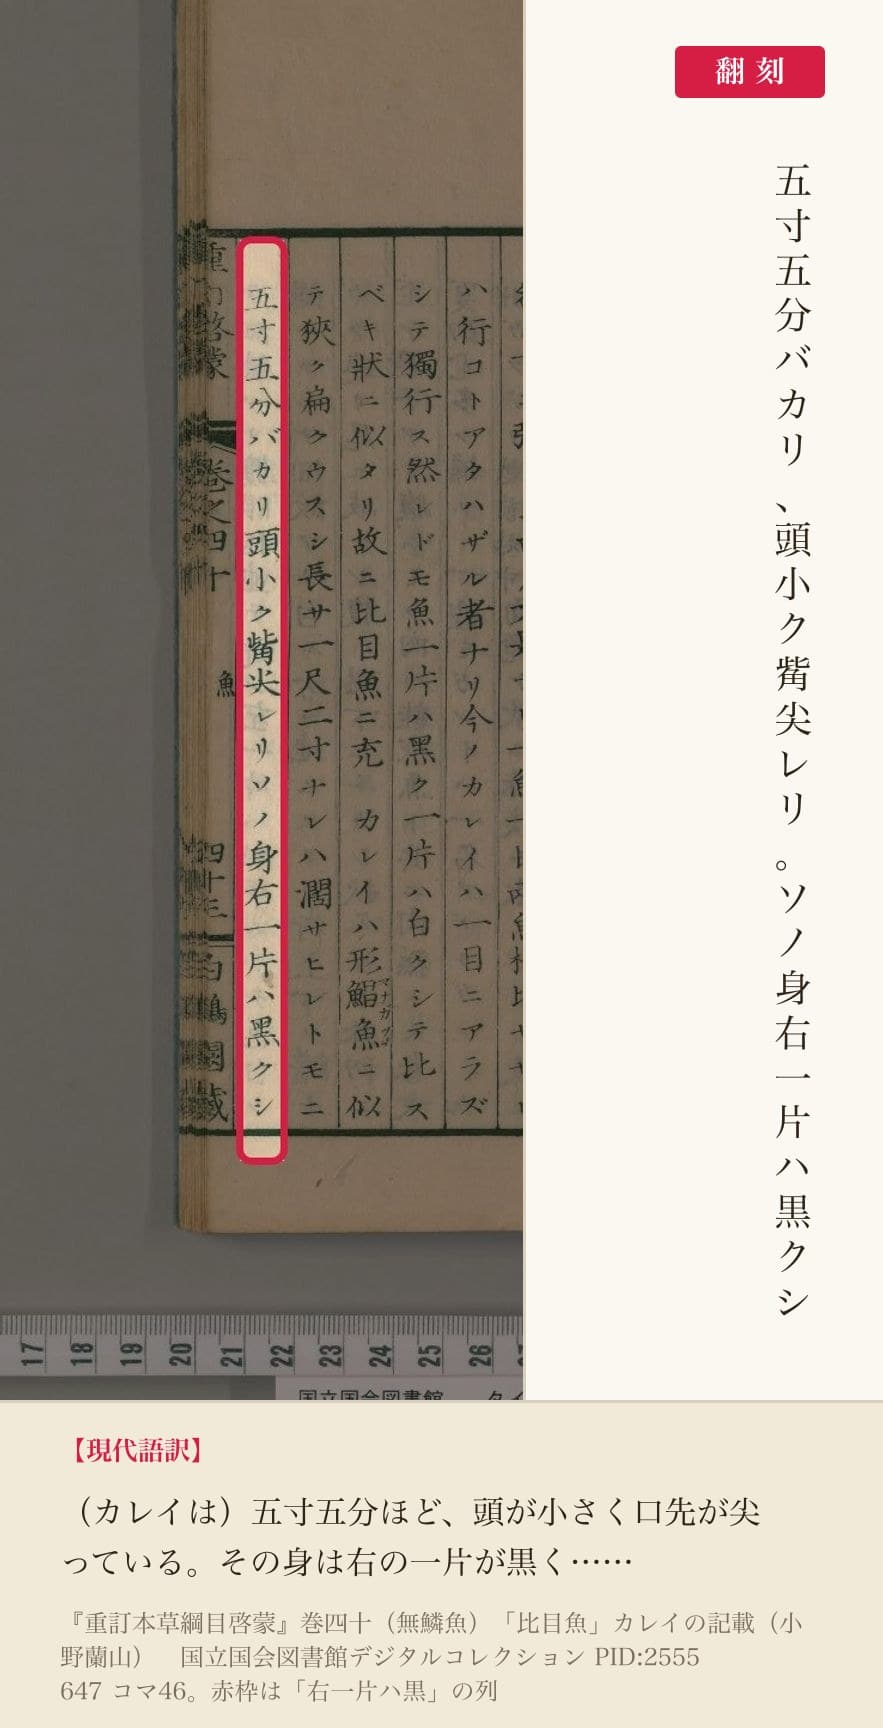 ハ行コトアタハザル者ナリ今ノカレイハ一目ニアラズ
シテ獨行ス然レドモ魚一片ハ黑ク一片ハ白クシテ比ス
ベキ狀ニ似タリ故ニ比目魚ニ充 カレイハ形鯧魚ニ似
マナガツヲ
テ狹ク扁クウスシ長サ一尺二寸ナレハ濶サヒレトモニ
五寸五分バカリ頭小ク觜尖レリソノ身右一片ハ黑クシ
啓蒙
卷之四十
魚
四十三
翻刻
五寸五分バカリ、頭小ク觜尖レリ。ソノ身右一片ハ黒クシ
17 18 19 20 21 22 23 24 25 26
国立国会図書館
【現代語訳】
（カレイは）五寸五分ほど、頭が小さく口先が尖
っている。その身は右の一片が黒く……
『重訂本草綱目啓蒙』巻四十（無鱗魚）「比目魚」カレイの記載（小
野蘭山） 国立国会図書館デジタルコレクション PID:2555
647 コマ46。赤枠は「右一片ハ黒」の列